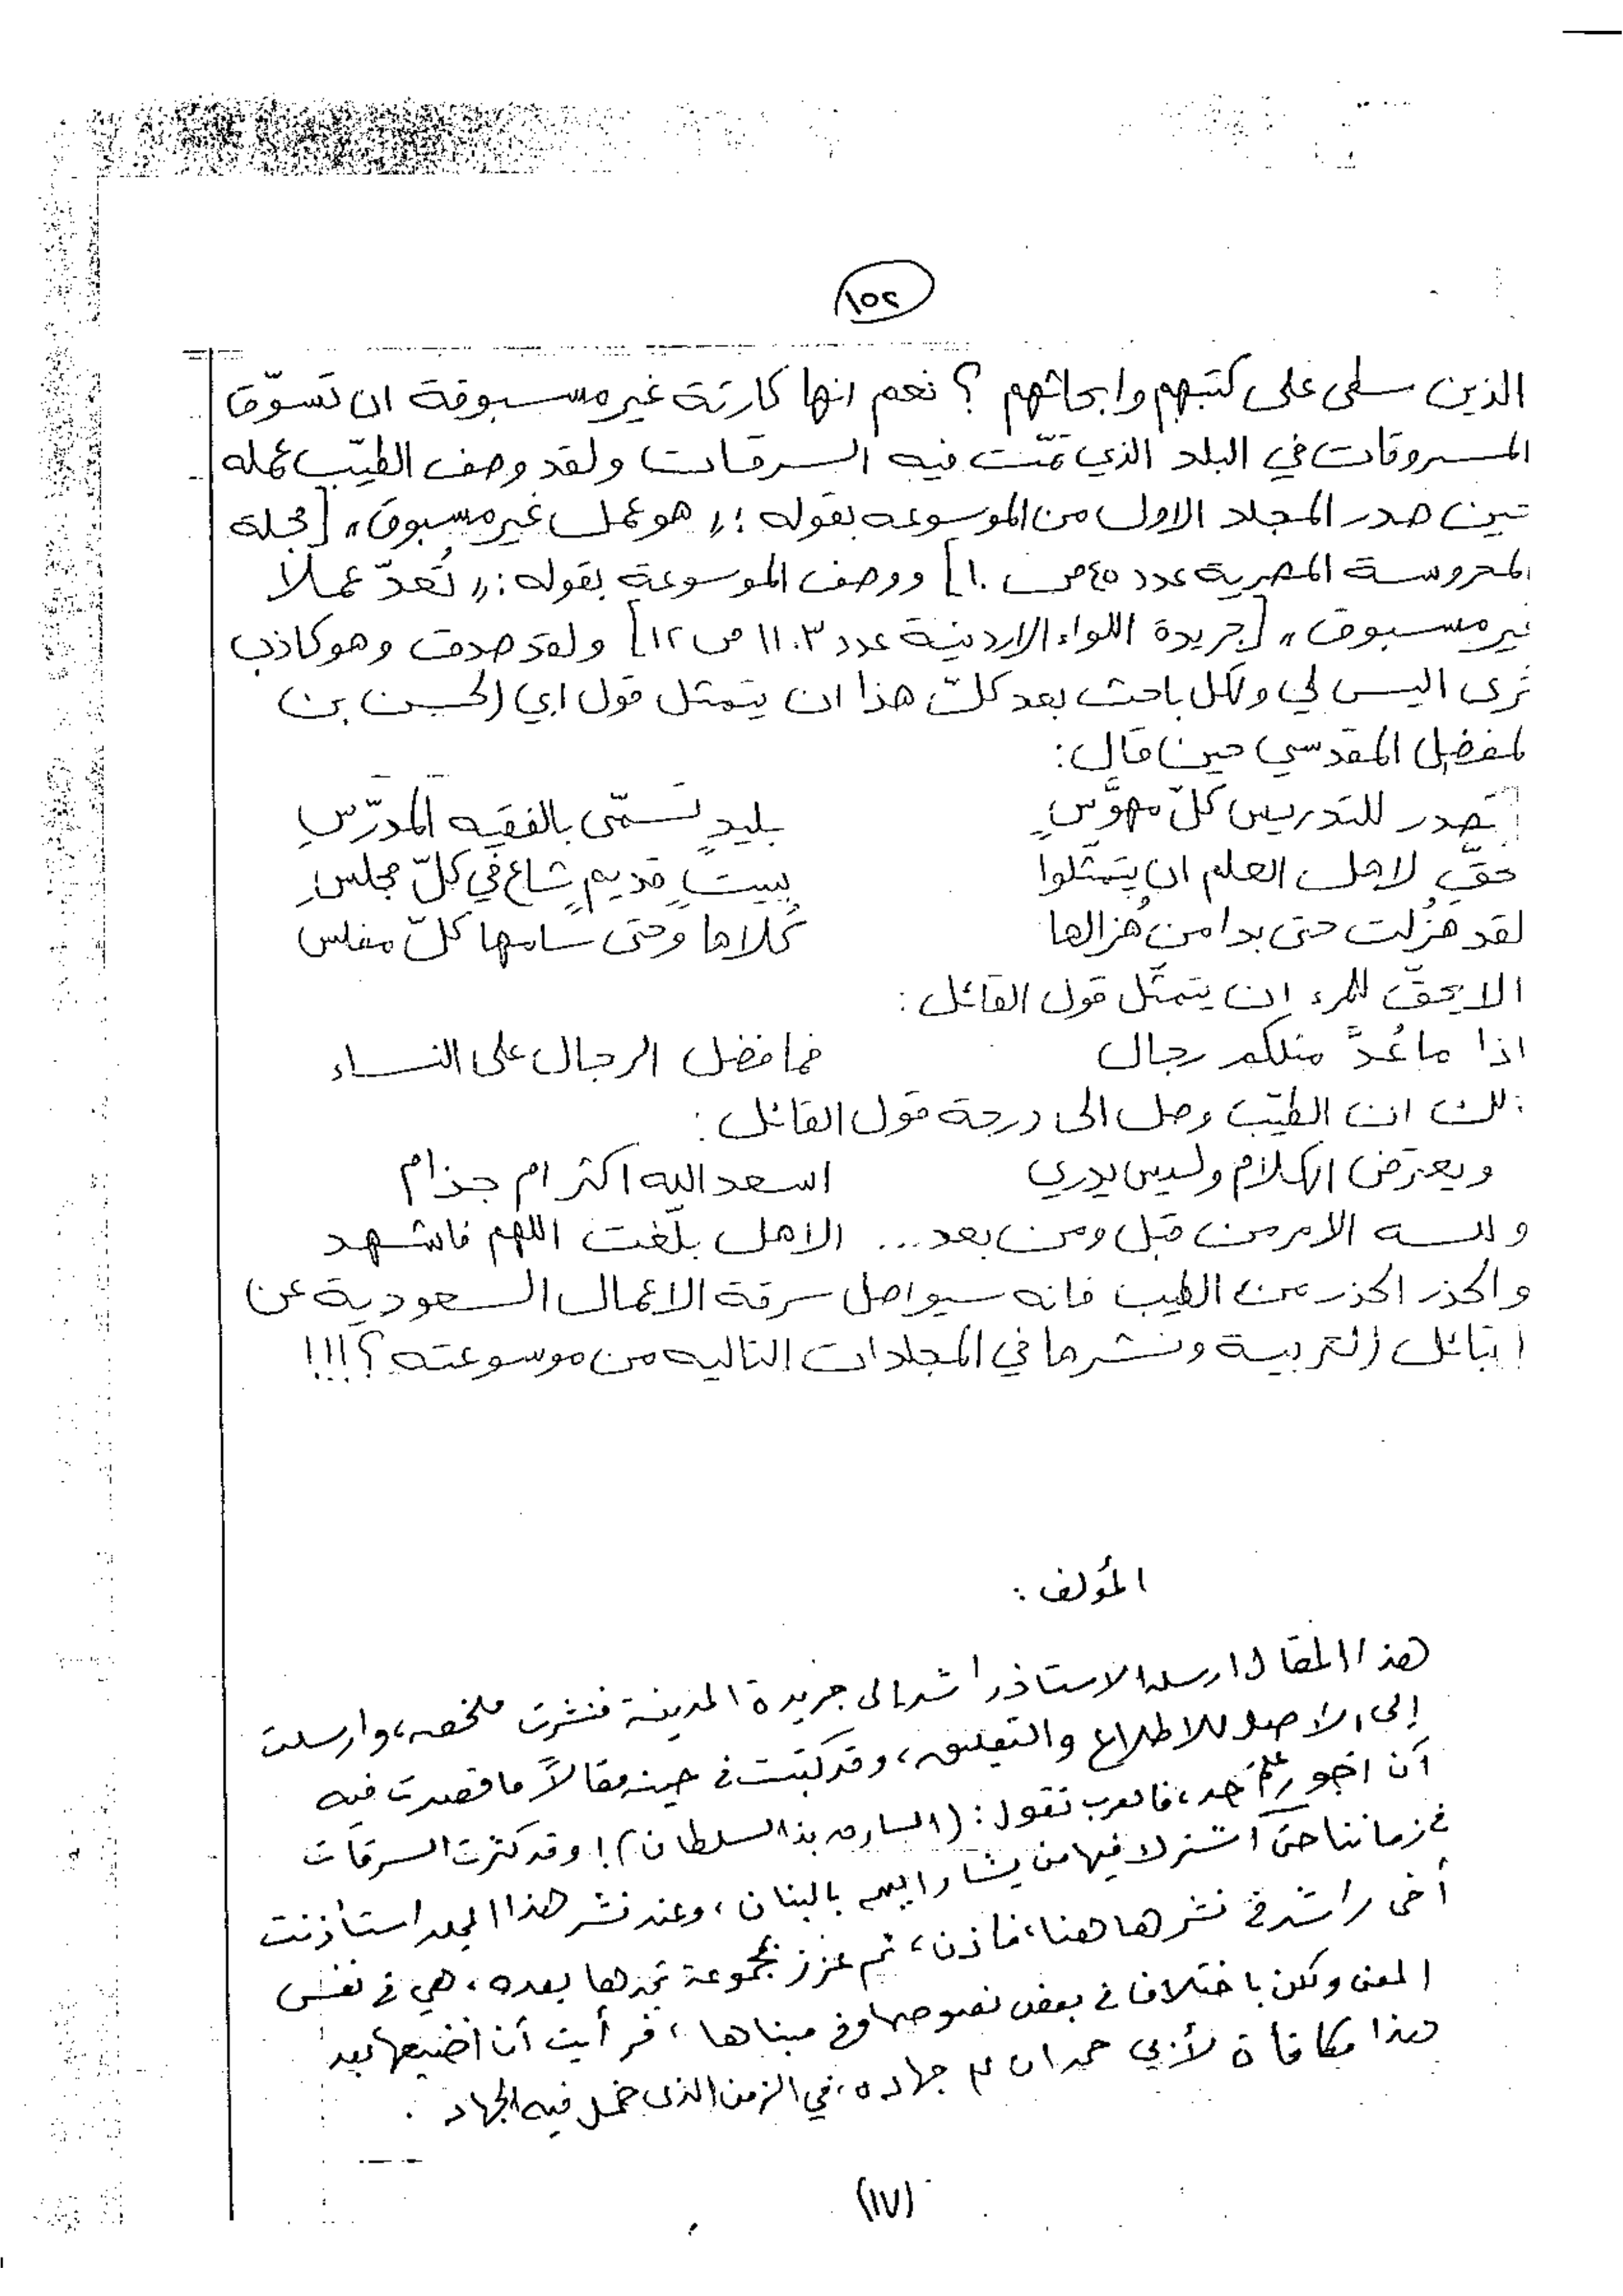 ١٥٢
الذين سطى على كتبهم وابحاثهم ؟ نعم انها كارثة غير مسبوقة ان تسوّق
المسروقات في البلد الذي تمّت فيه السرقات ولقد وصف الطيّب عمله
حين صدر المجلد الاول من الموسوعه بقوله : « هو عمل غير مسبوق » [ مجلة
المحروسة المصرية عدد ٤٥ ص ١٠ ] ووصف الموسوعة بقوله : « تُعدّ عملاً
غير مسبوق » [ جريدة اللواء الاردنية عدد ١١٠٣ ص ١٢ ] ولقد صدق وهو كاذب
ترى اليس لي ولكل باحث بعد كلّ هذا ان يتمثل قول ابي الحسين بن
لمفضل المقدسي حين قال :
تصدر للتدريس كلّ مهوَّسٍ بليدٍ تسمّى بالفقيه المدرّسِ
حقّ لاهل العلم ان يتمثّلوا ببيتٍ قديمٍ شاع في كلّ مجلسِ
لقد هزُلت حتى بدا من هُزالها كُلاها وحتى سامها كلّ مفلس
الا يحقّ للمرء ان يتمثّل قول القائل :
اذا ما عُدَّ مثلكم رجال فما فضل الرجال على النساء
ذلك ان الطيّب وصل الى درجة قول القائل :
ويعترض الكلام وليس يدري اسعد الله اكثر ام جذام
ولله الامر من قبل ومن بعد ... الا هل بلّغت اللهم فاشهد
والحذر الحذر من الطيب فانه سيواصل سرقة الاعمال السعودية عن
القبائل العربية ونشرها في المجلدات التاليه من موسوعته ؟!!!
المؤلف :
هذا المقال ارسله الاستاذ راشد الى جريدة المدينة فنشرت ملخصه، وارسلت
إلى الاصل للاطلاع والتعليق، وقد كتبت في حينه مقالاً ما قصدت فيه
أن اجور على أحد، فالعرب تقول : (السارق بذ السلطان) ! وقد كثرت السرقات
في زماننا حتى اشترك فيها من يشار إليهم بالبنان، وعند نشر هذا المجلد استأذنت
أخي راشد في نشرها هنا، فأذن، ثم عزز بمجموعة تجدها بعده، هي في نفس
المعنى ولكن باختلاف في بعض نصوصها وفي مبناها، فرأيت أن أضيعها بعد
هذا مكافأة لأبي حمدان لم جهاده، في الزمن الذي خمل فيه الجهاد .
(١٧)